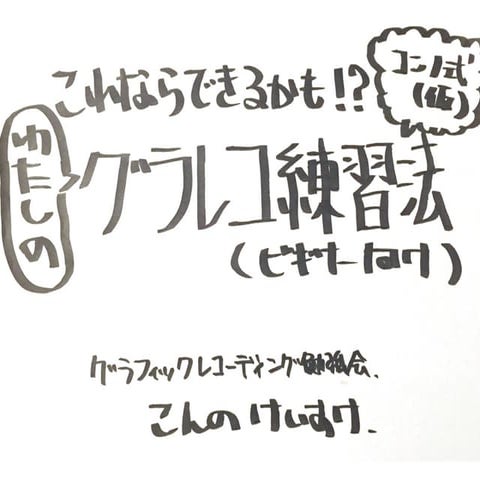 これならできるかも!?
コンノ式
(仮)
わたしの
グラレコ練習法
(ビギナー向け)
グラフィックレコーディング勉強会.
こんのけいすけ.